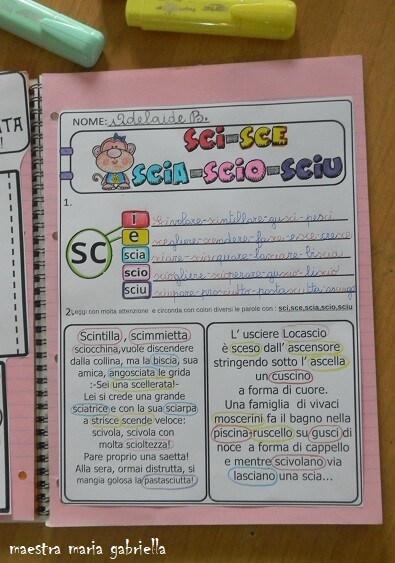 NOME: Adelaide B.
SCI-SCE
SCIA-SCIO-SCIU
1.
SC
i
e
scia
scio
sciu
scivolare-scintillare-gusci-pesci
scegliere-scendere-fasce-esce-cresce
sciare-sciacquare-lasciare-biscia
sciogliere-scioperare-guscio-liscio
sciupare-prosciutto-pastasciutta
2.Leggi con molta attenzione e circonda con colori diversi le parole con : sci,sce,scia,scio,sciu
Scintilla , scimmietta
sciocchina,vuole discendere
dalla collina, ma la biscia, sua
amica, angosciata le grida
:-Sei una scellerata!-
Lei si crede una grande
sciatrice e con la sua sciarpa
a strisce scende veloce:
scivola, scivola con
molta scioltezza!
Pare proprio una saetta!
Alla sera, ormai distrutta, si
mangia golosa la pastasciutta!
L' usciere Locascio
è sceso dall' ascensore
stringendo sotto l' ascella
un cuscino
a forma di cuore.
Una famiglia di vivaci
moscerini fa il bagno nella
piscina-ruscello su gusci di
noce a forma di cappello
e mentre scivolano via
lasciano una scia...
maestra maria gabriella